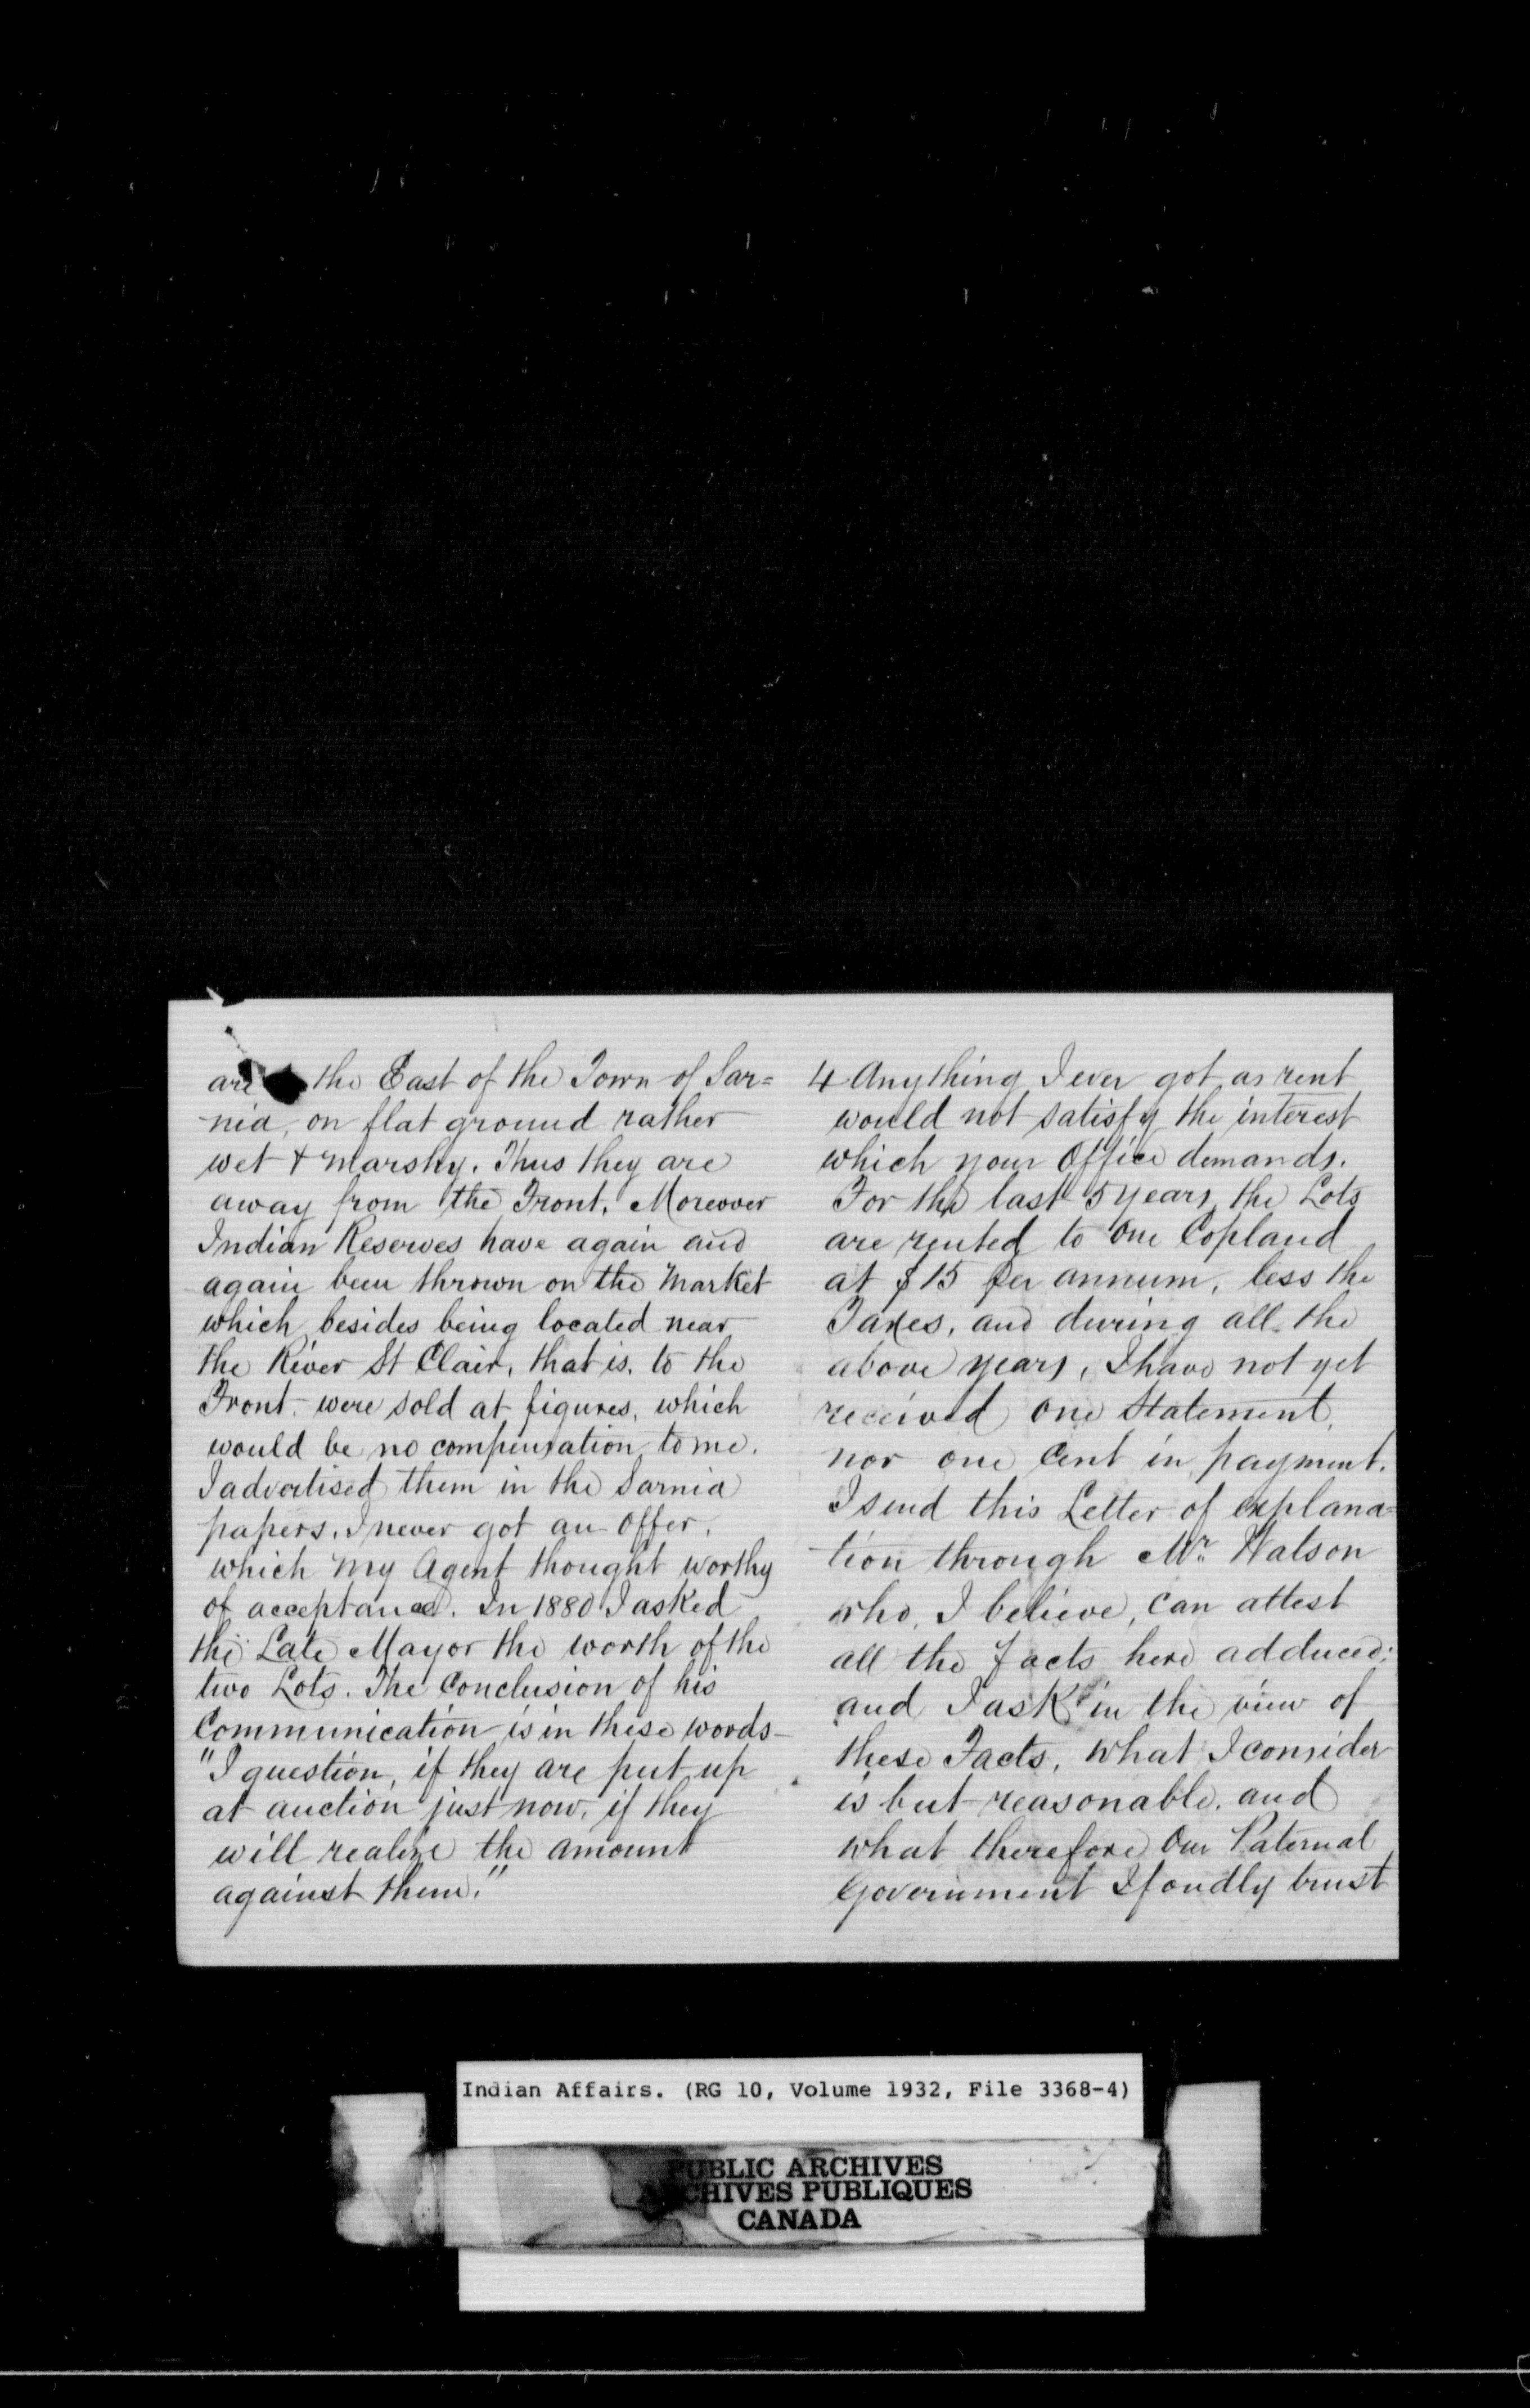 are the East of the Town of Sar=
nia, on flat ground rather
wet & marshy. Thus they are
away from the Front. Moreover
Indian Reserves have again and
again been thrown on the Market
which besides being located near
the River St Clair, that is, to the
Front were sold at figures, which
would be no compensation to me.
I advertised them in the Sarnia
papers. I never got an offer,
which my Agent thought worthy
of acceptance. In 1880 I asked
the Late Mayor the worth of the
two Lots. The Conclusion of his
Communication is in these words—
"I question, if they are put up
at auction just now, if they
will realize the amount
against them."
4 Anything I ever got as rent
would not satisfy the interest
which your Office demands.
For the last 5 years the Lots
are rented to one Copland
at $15 per annum, less the
Taxes, and during all the
above years, I have not yet
received one Statement,
nor one Cent in payment.
I send this Letter of explana=
tion through Mr. Watson
who, I believe, can attest
all the facts here adduced;
and I ask in the view of
these Facts, what I consider
is but reasonable, and
what therefore Our Paternal
Government I fondly trust
Indian Affairs. (RG 10, Volume 1932, File 3368-4)
PUBLIC ARCHIVES
ARCHIVES PUBLIQUES
CANADA